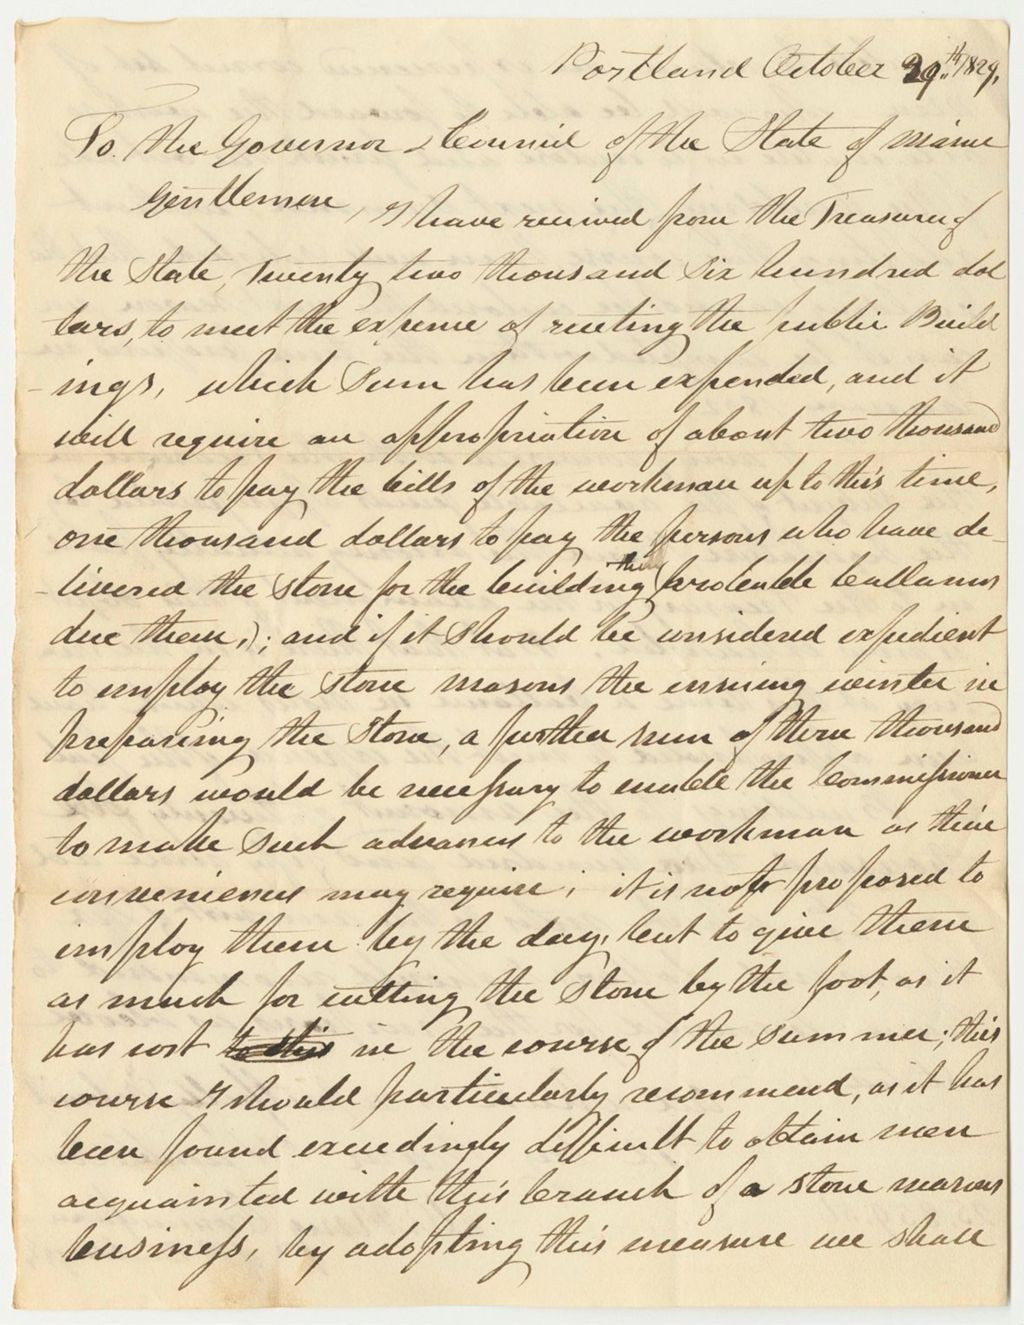 Portland October 29.th 1829.
To. the Governor & Council of the State of Maine
Gentlemen, I have received from the Treasurer of
the State, Twenty two thousand six hundred dol
lars, to meet the expense of erecting the public Build
-ings, which sum has been expended, and it
will require an appropriation of about two thousand
dollars to pay the bills of the workman up to this time,
one thousand dollars to pay the persons who have de-
-livered the stone for the building (probable ballances
due them,); and if it should be considered expedient
to employ the stone masons the ensuing winter in
preparing the stone, a further sum of three thousand
dollars would be necessary to enable the Commissioner
to make such advances to the workman as their
conveniences may require; it is not proposed to
employ them by the day, but to give them
as much for cutting the stone by the foot, as it
has cost in the course of the summer; this
course I should particularly recommend, as it has
been found exceedingly difficult to obtain men
acquainted with this branch of a stone masons
business, by adopting this measure we shall